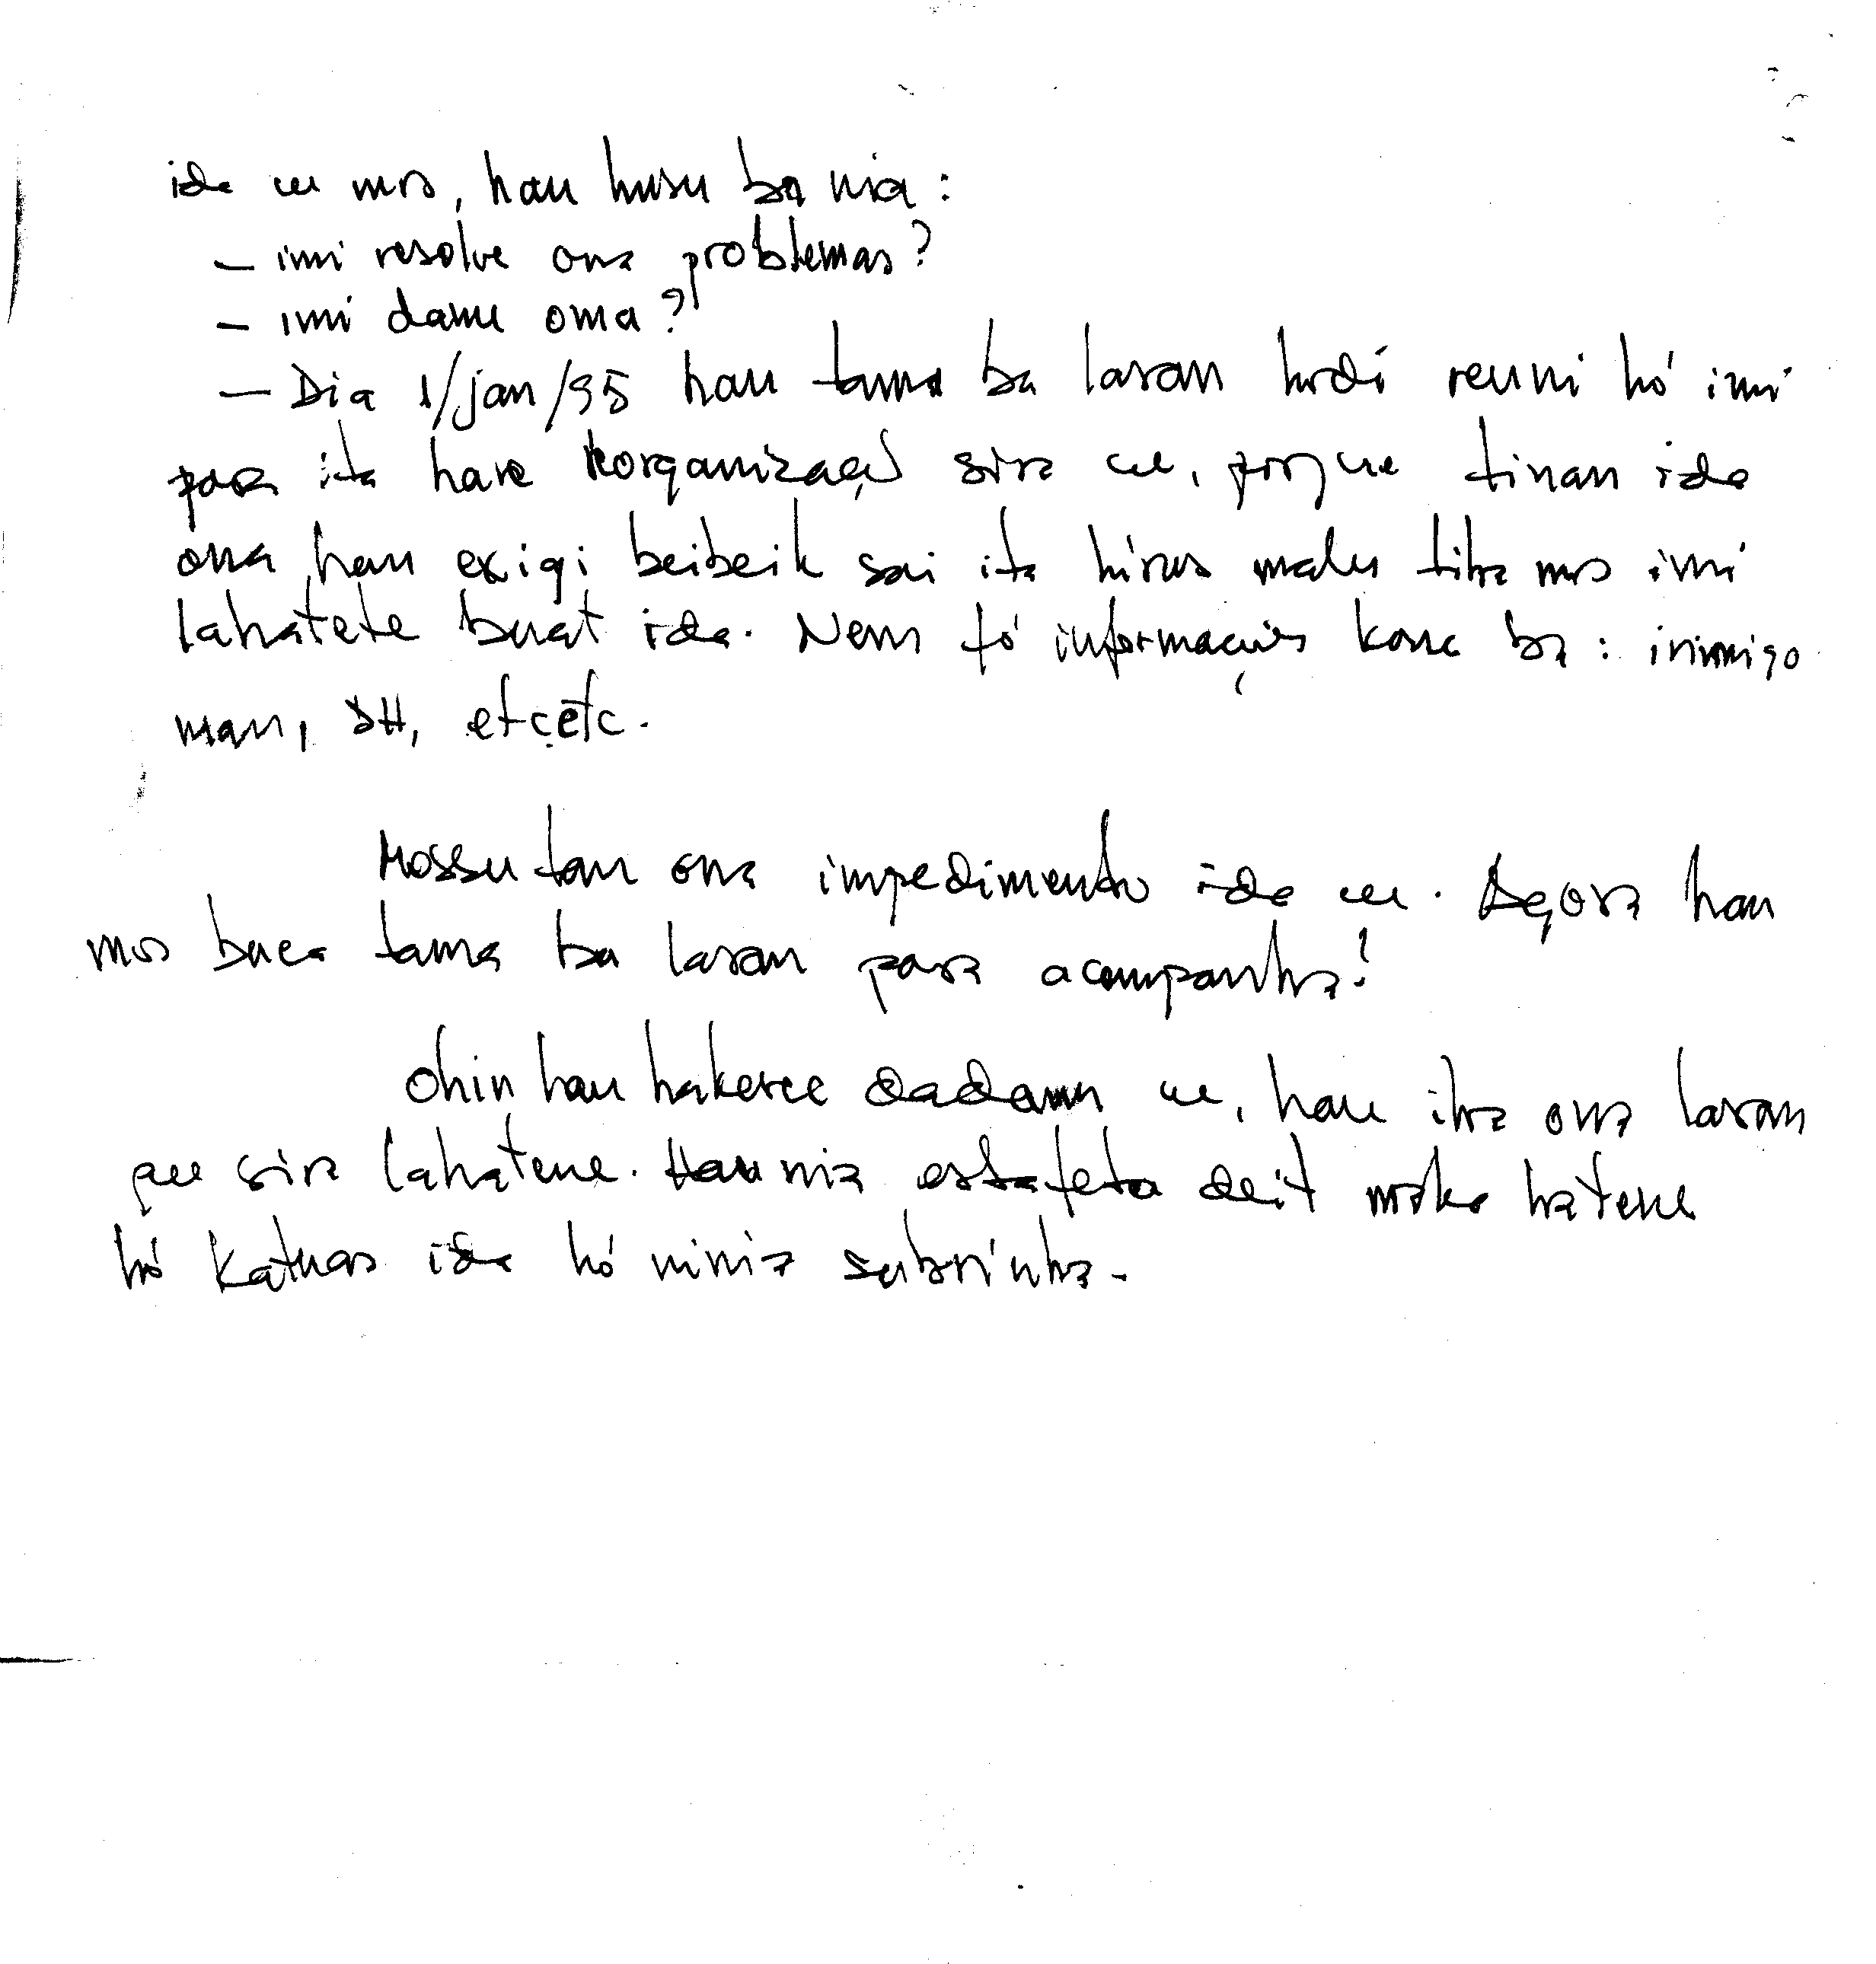 ida ne mos, hau husu ba nia:
– imi resolve ona problemas?
– imi dame oma?
– Dia 1/jan/95 hau tama ba laran hodi reuni hó imi
para ita hare reorganizaçaõ sira ne, porque tinan ida
ona hau exigi beibeik sai ita hirus malu tiha mos imi
lahatete buat ida. Nem fó informações kona ba: inimigo
mau, DH, etc etc.
Mossu tan ona impedimento ida ne. Agora hau
mos buca tama ba laran para acompanha!
Ohin hau hakeree dadaun ne, hau iha ona laran
que sira lahatene. Hau nia estafeta deit maka hatene
hó Katuas ida hó ninia subrinha.